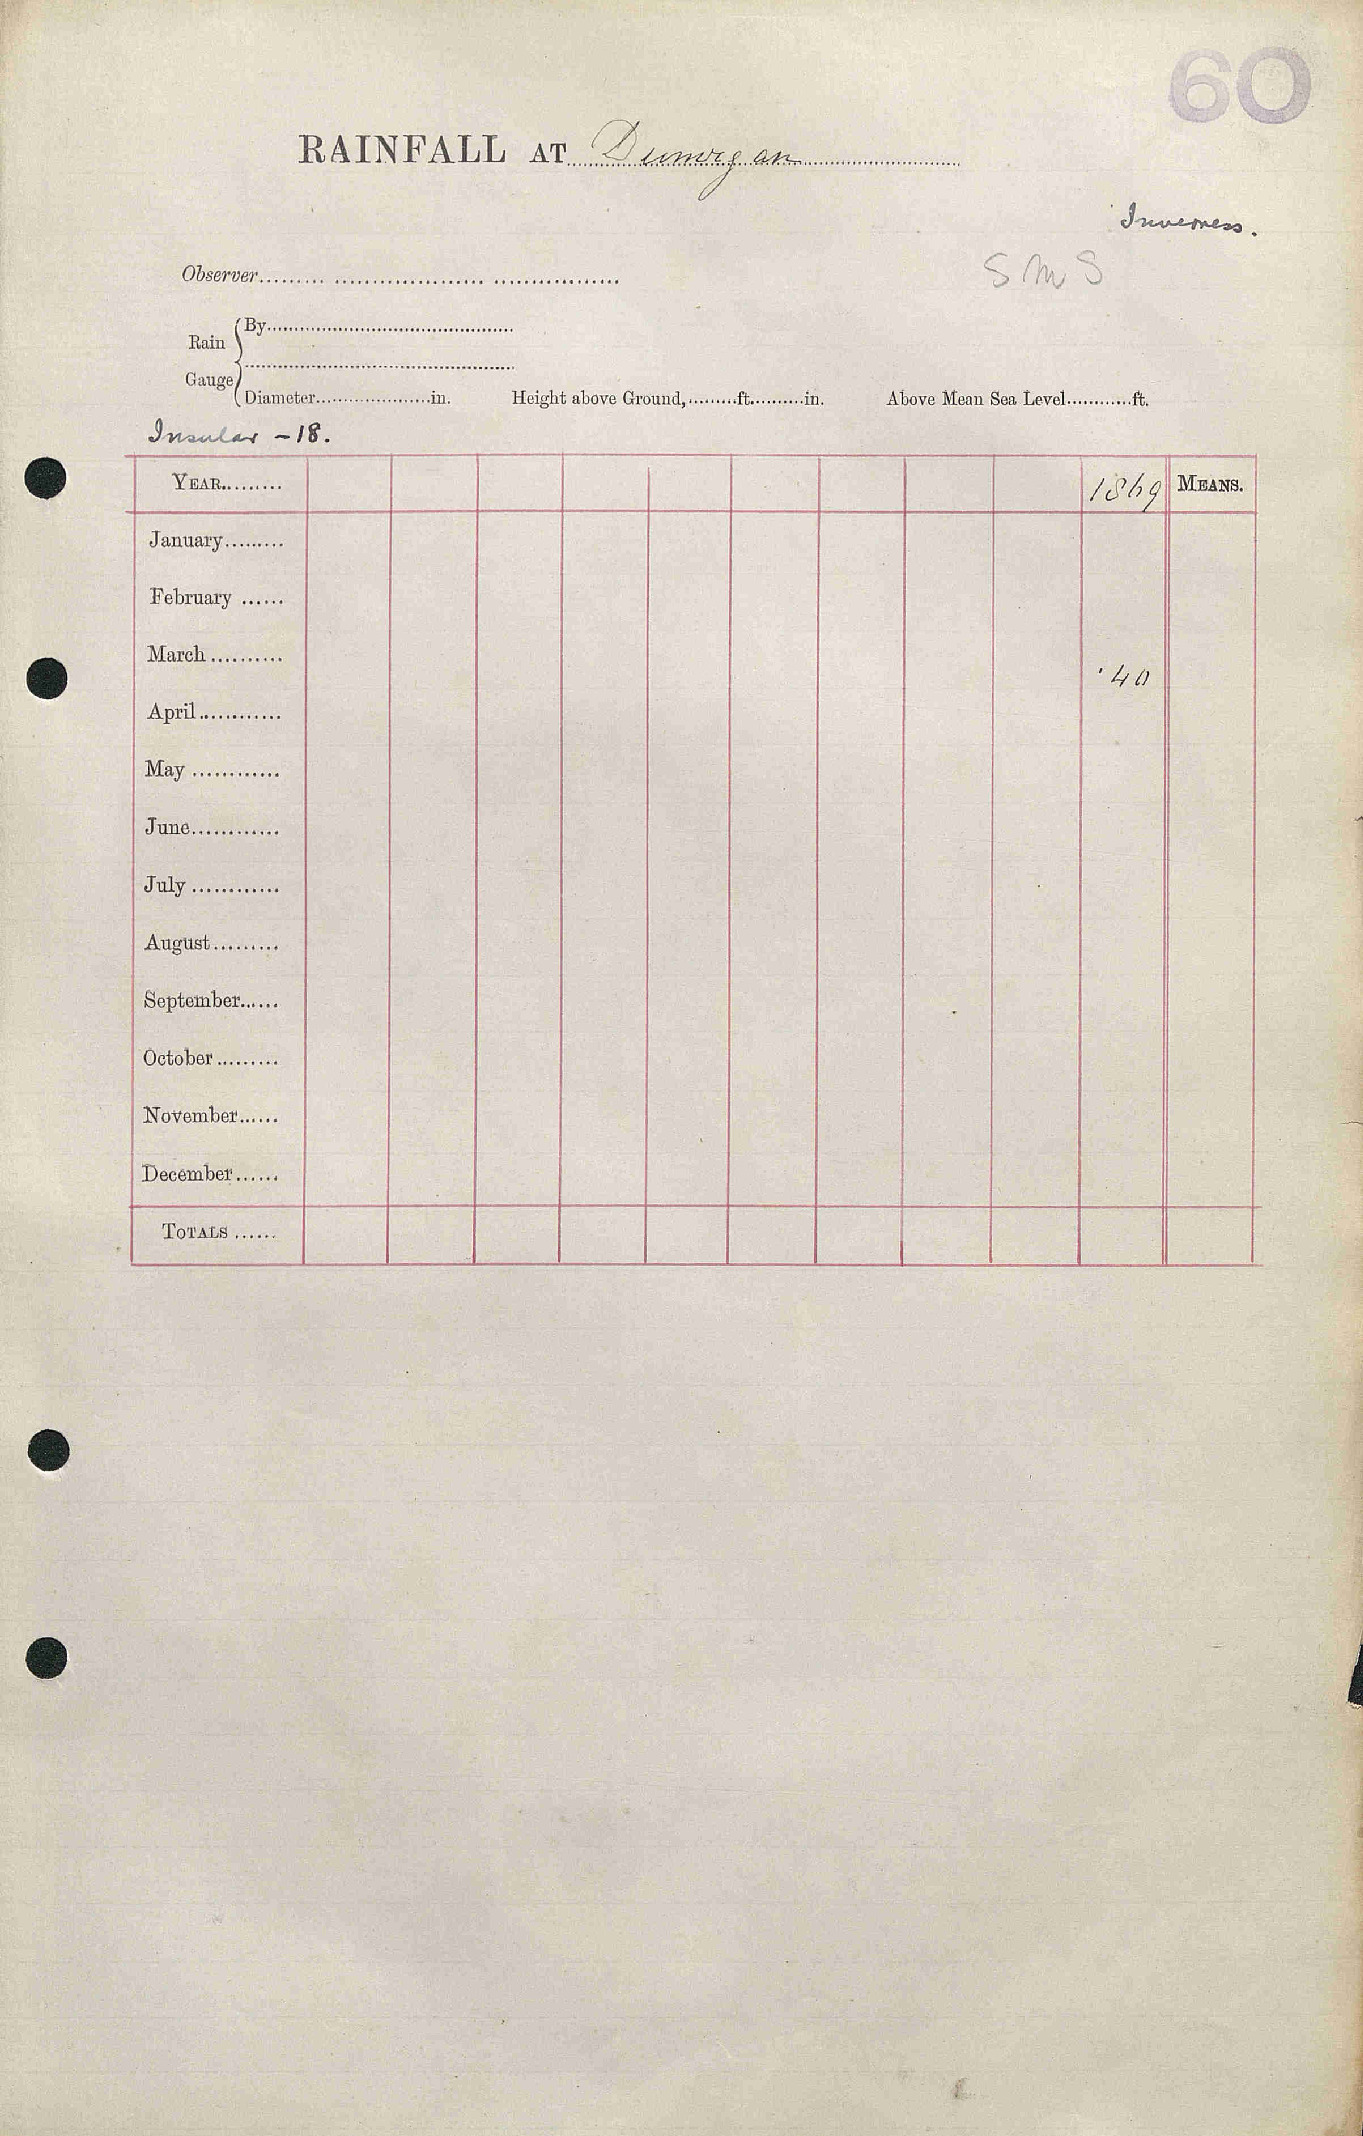 60
RAINFALL AT Dunvegan
Inverness.
Observer
S M S
Rain Gauge
By
Diameter in. Height above Ground, ft. in. Above Mean Sea Level ft.
Insular - 18.
YEAR 1869 MEANS.
January
February
March ·40
April
May
June
July
August
September
October
November
December
TOTALS